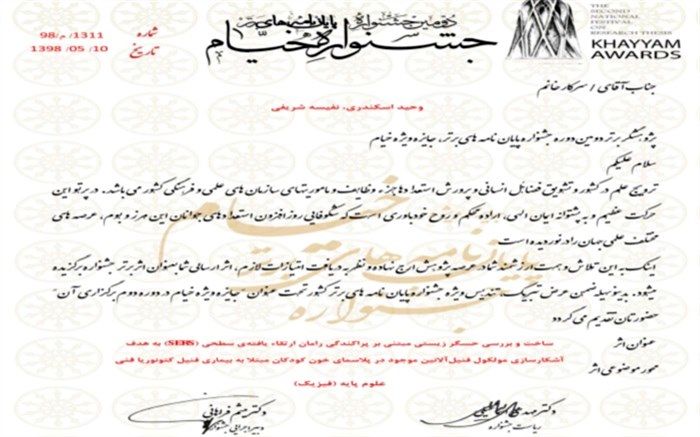 دومین جشنواره پایان نامه های برتر
جشنواره خیام
THE
SECOND
NATIONAL
FESTIVAL
ON
RESEARCH THESIS
KHAYYAM
AWARDS
شماره 1311/م/98
تاریخ 10/05/1398
جناب آقای / سرکار خانم
وحید اسکندری، نفیسه شریفی
پژوهشگر برتر دومین دوره جشنواره پایان نامه های برتر، جایزه ویژه خیام
سلام علیکم
ترویج علم در کشور و تشویق فضایل انسانی و پرورش استعدادها جزء وظایف و ماموریتهای سازمان های علمی و فرهنگی کشور می باشد. در پرتو این
حرکت عظیم و به پشتوانه ایمان الهی، اراده محکم و روح خودباوری است که شکوفایی روز افزون استعدادهای جوانان این مرز و بوم، عرصه های
مختلف علمی جهان را درنوردیده است
اینک به این تلاش و همت ارزشمند شما در عرصه پژوهش ارج نهاده و نظر به دریافت امتیازات لازم، اثر ارسالی شما بعنوان اثر برتر جشنواره برگزیده
میشود. بدینوسیله ضمن عرض تبریک، تندیس ویژه جشنواره پایان نامه های برتر کشور تحت عنوان "جایزه ویژه خیام در دوره دوم برگزاری آن"
حضورتان تقدیم می گردد
عنوان اثر ساخت و بررسی حسگر زیستی مبتنی بر پراکندگی رامان ارتقاء یافته‌ی سطحی (SERS) به هدف
آشکارسازی مولکول فنیل‌آلانین موجود در پلاسمای خون کودکان مبتلا به بیماری فنیل کتونوریا فنی
محور موضوعی اثر
علوم پایه (فیزیک)
دکتر مهدی
ریاست جشنواره
دکتر میثم
دبیر اجرایی جشنواره